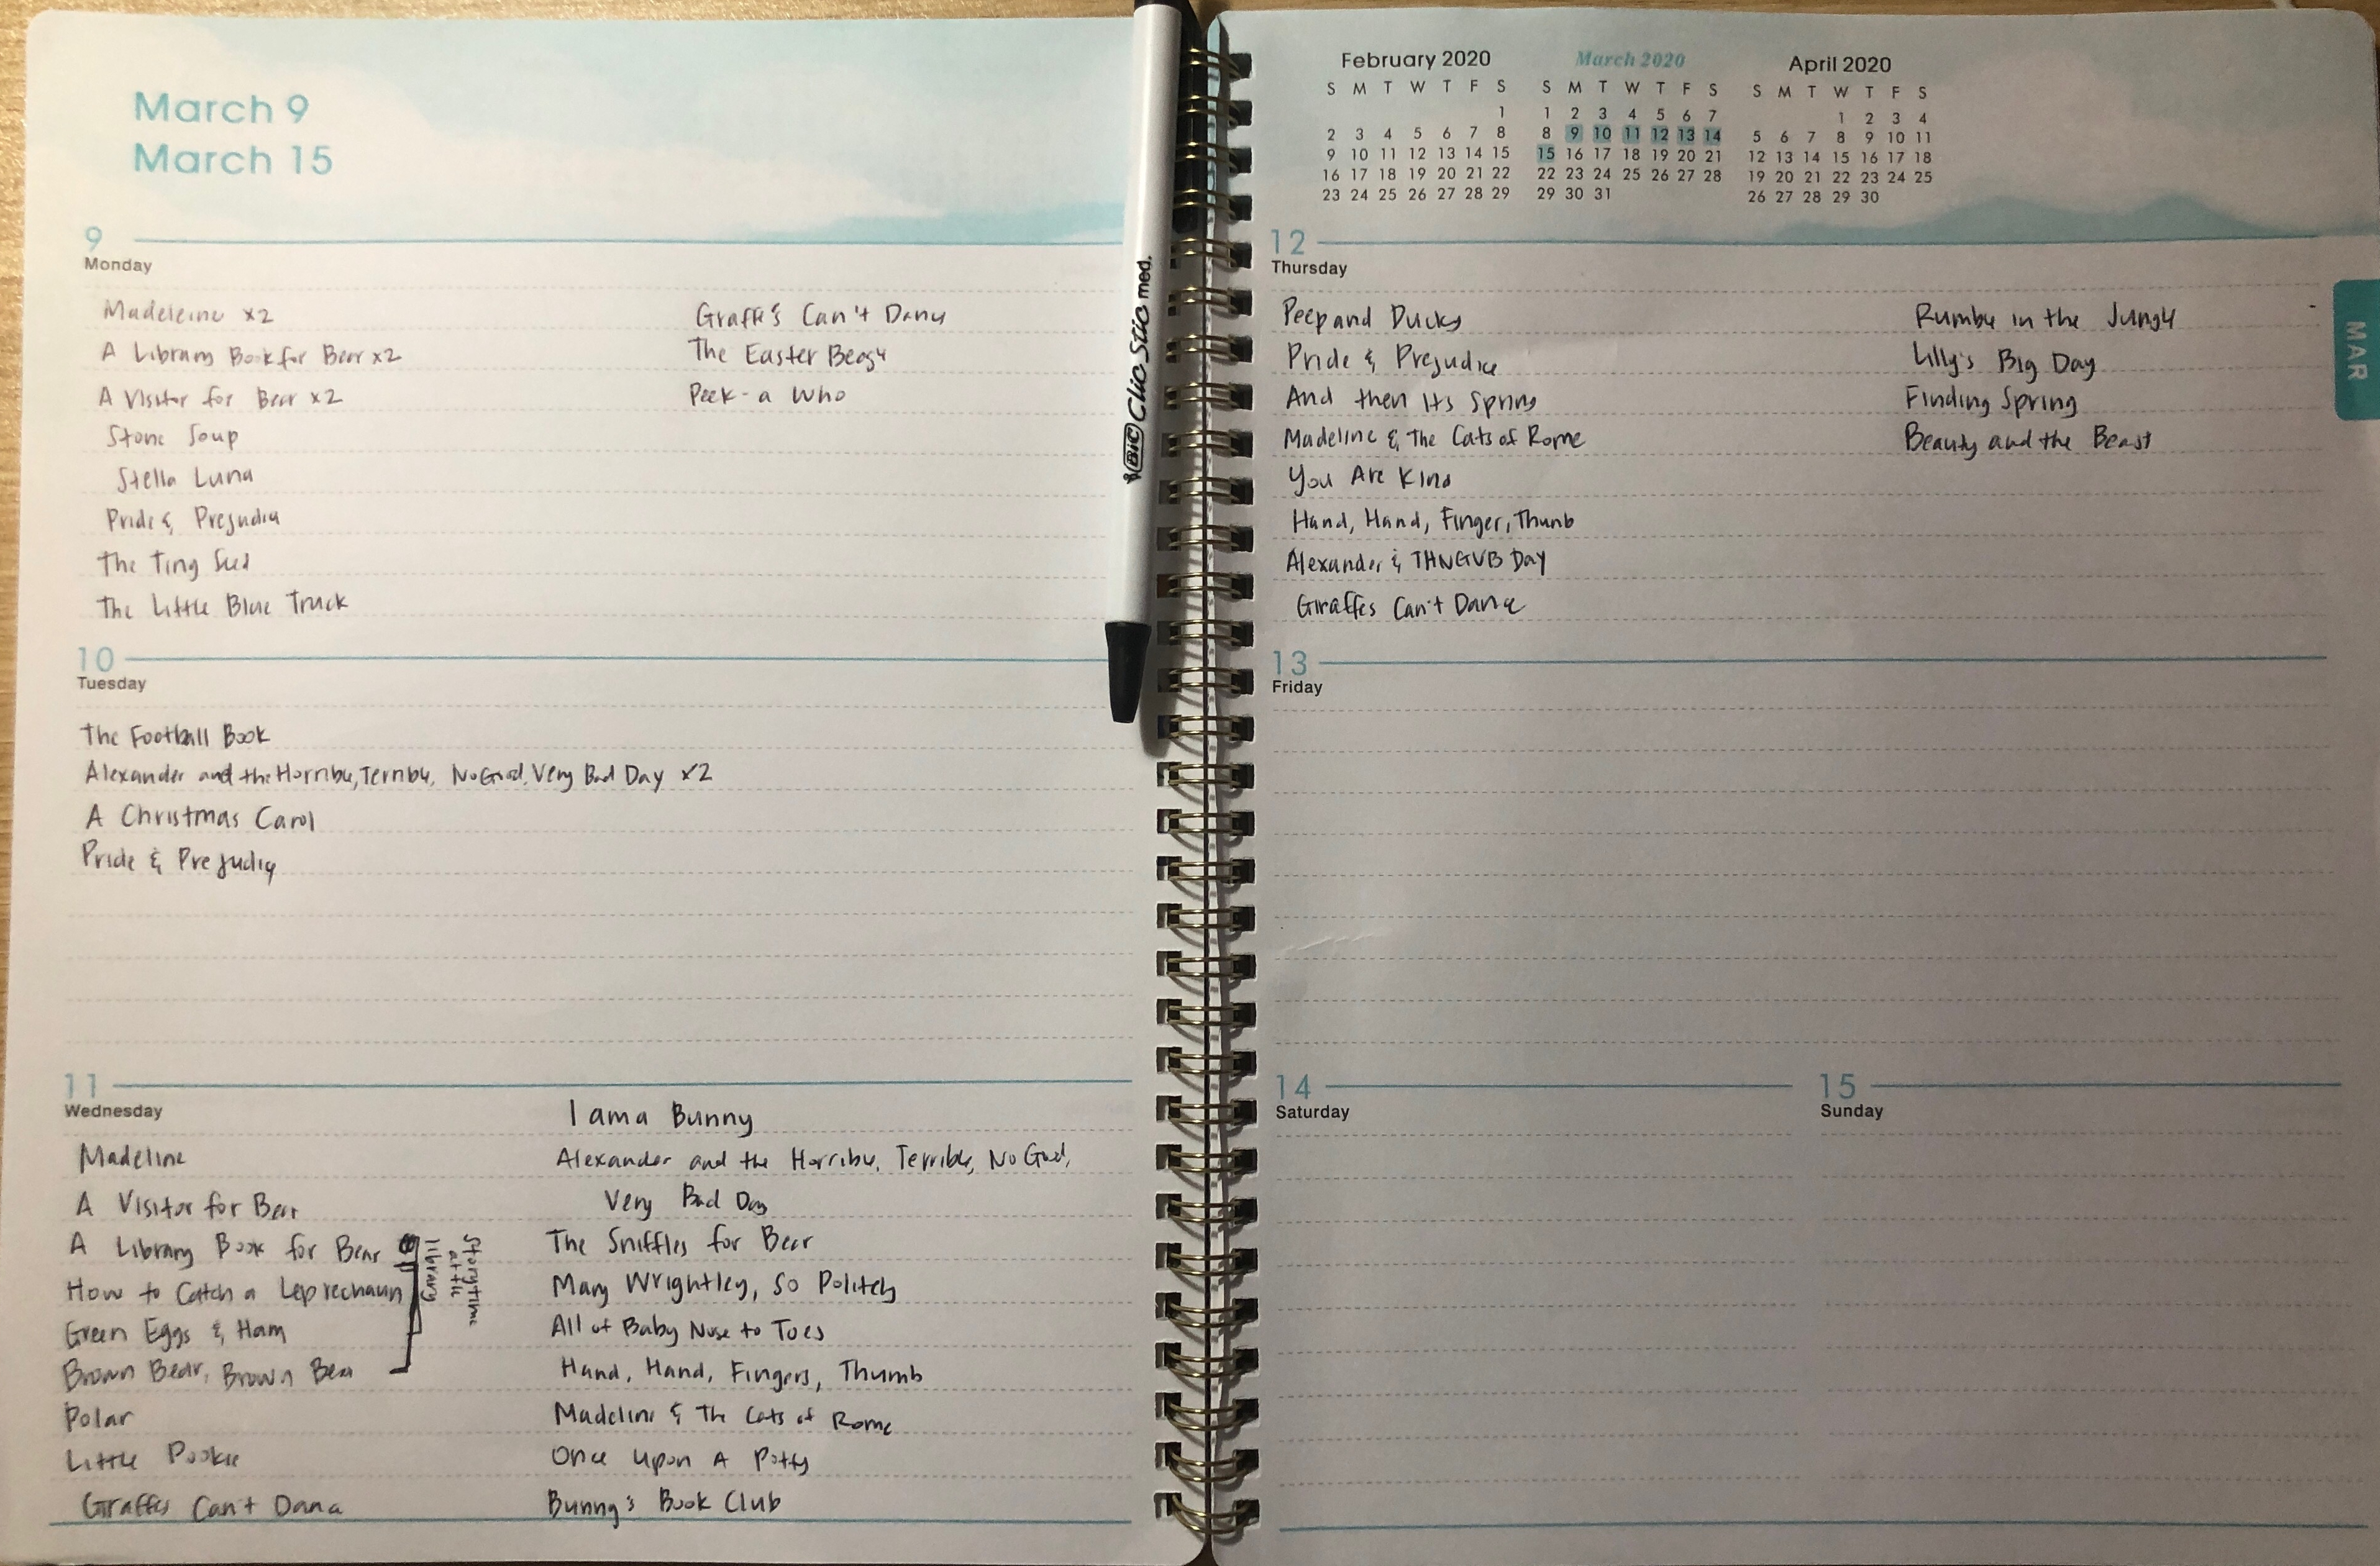 March 9
March 15
9
Monday
Madeleine x2
A Library Book for Bear x2
A Visitor for Bear x2
Stone Soup
Stella Luna
Pride & Prejudice
The Tiny Seed
The Little Blue Truck
Giraffes Can't Dance
The Easter Beagle
Peek-a Who
10
Tuesday
The Football Book
Alexander and the Horrible, Terrible, No Good, Very Bad Day x2
A Christmas Carol
Pride & Prejudice
11
Wednesday
Madeline
A Visitor for Bear
A Library Book for Bear
How to Catch a Leprechaun
Green Eggs & Ham
Brown Bear, Brown Bear
Storytime
at the
library
Polar
Little Pookie
Giraffes Can't Dance
I am a Bunny
Alexander and the Horrible, Terrible, No Good,
Very Bad Day
The Sniffles for Bear
Mary Wrightley, So Politely
All of Baby Nose to Toes
Hand, Hand, Fingers, Thumb
Madeline & The Cats of Rome
Once Upon A Potty
Bunny's Book Club
BIC Clic Stic med.
February 2020
S M T W T F S
1
2 3 4 5 6 7 8
9 10 11 12 13 14 15
16 17 18 19 20 21 22
23 24 25 26 27 28 29
March 2020
S M T W T F S
1 2 3 4 5 6 7
8 9 10 11 12 13 14
15 16 17 18 19 20 21
22 23 24 25 26 27 28
29 30 31
April 2020
S M T W T F S
1 2 3 4
5 6 7 8 9 10 11
12 13 14 15 16 17 18
19 20 21 22 23 24 25
26 27 28 29 30
MAR
12
Thursday
Peep and Ducks
Pride & Prejudice
And then Its Spring
Madeline & The Cats of Rome
You Are Kind
Hand, Hand, Finger, Thumb
Alexander & THNGVB Day
Giraffes Can't Dance
Rumble in the Jungle
Lilly's Big Day
Finding Spring
Beauty and the Beast
13
Friday
14
Saturday
15
Sunday